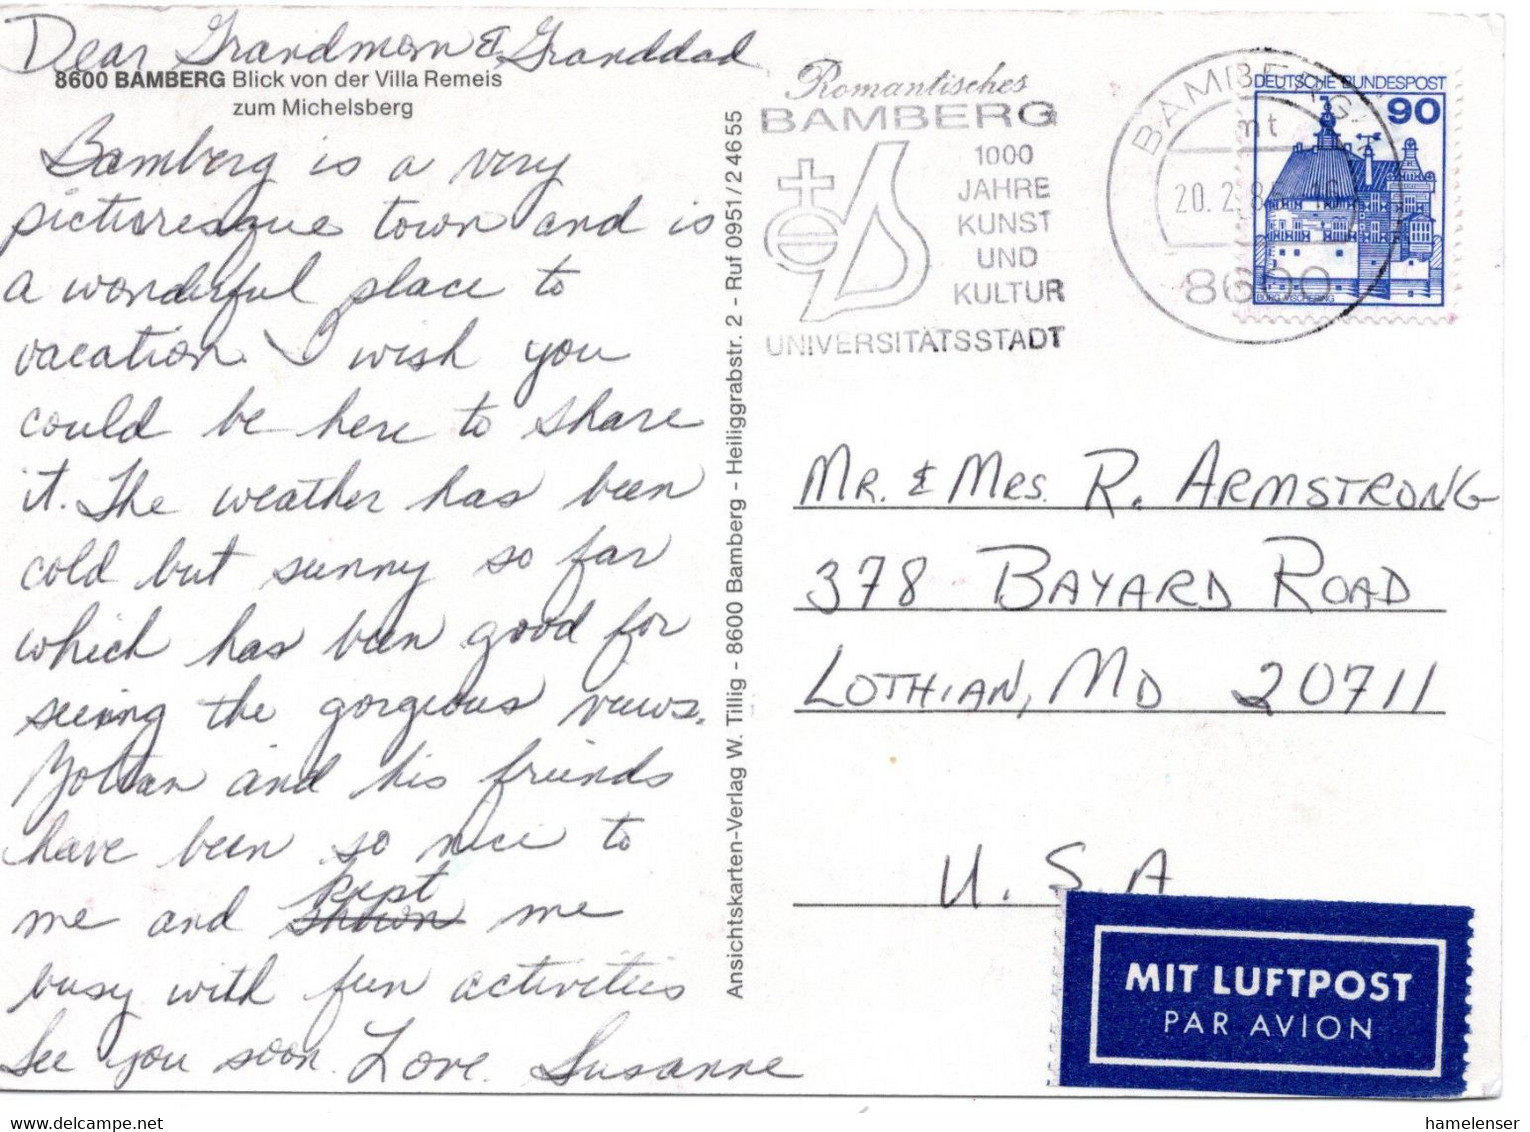 Dear Grandmom & Granddad
8600 BAMBERG Blick von der Villa Remeis
zum Michelsberg
Bamberg is a very
picturesque town and is
a wonderful place to
vacation. I wish you
could be here to share
it. The weather has been
cold but sunny so far
which has been good for
seeing the gorgeous views.
Zoltan and his friends
have been so nice to
kept
me and shown me
busy with fun activities
See you soon. Love, Susanne
Ansichtskarten-Verlag W. Tillig - 8600 Bamberg - Heiliggrabstr. 2 - Ruf 0951/24655
Romantisches
BAMBERG
1000
JAHRE
KUNST
UND
KULTUR
UNIVERSITÄTSSTADT
BAMBERG
mt
20. 2. 8
8600
DEUTSCHE BUNDESPOST
90
BURG VISCHERING
MR. & MRS. R. ARMSTRONG
378 BAYARD ROAD
LOTHIAN, MD 20711
U.S.A
MIT LUFTPOST
PAR AVION
hamelenser